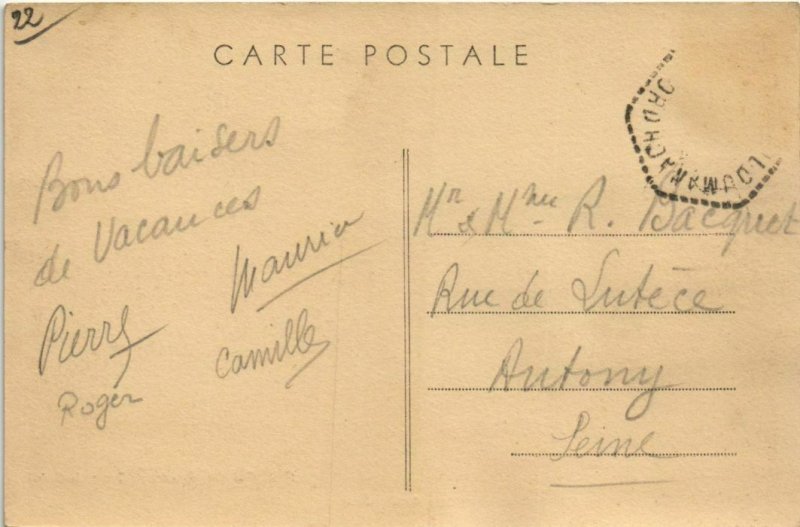 22
CARTE POSTALE
Bons baisers
de Vacances
Maurice
Pierre
Camille
Roger
Mr & Mme R. Bacquet
Rue de Lutèce
Antony
Seine
PLOUMANACH